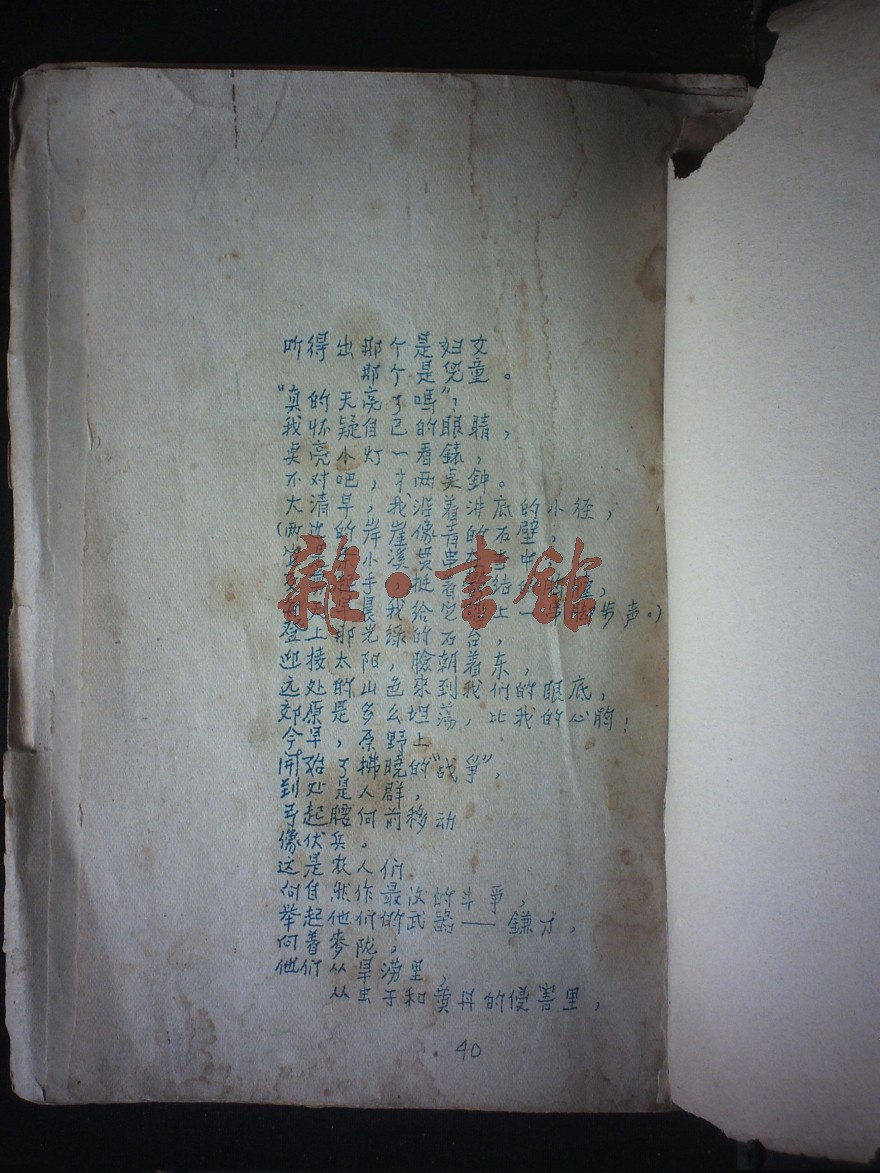 听得出那个是妇女
那个是児童。
"真的天亮了嗎"?
我怀疑自己的眼睛,
点亮小灯一看錶,
不对吧,才两点鈡。
大清早,我沿着洪底的小径,
(两边的岸崖像青的石壁,
小溪貫串
手挺着
晨我給它上一 脚步声。)
登上那光綠的石台,
迎接太阳,臉朝着东,
远处的山色来到我們的眼底,
郊原是多么坦荡,比我的心胸!
今早,原野上
開始了拂曉的"战爭",
到处是人群,
弓起腰向前移动
像伏兵。
这是农人們
向自然作最后的斗爭,
举起他們的武器——鎌刀,
向着麥陇,
他們从旱涝里,
从虫子和黄丹的侵害里,
40
雜·書館